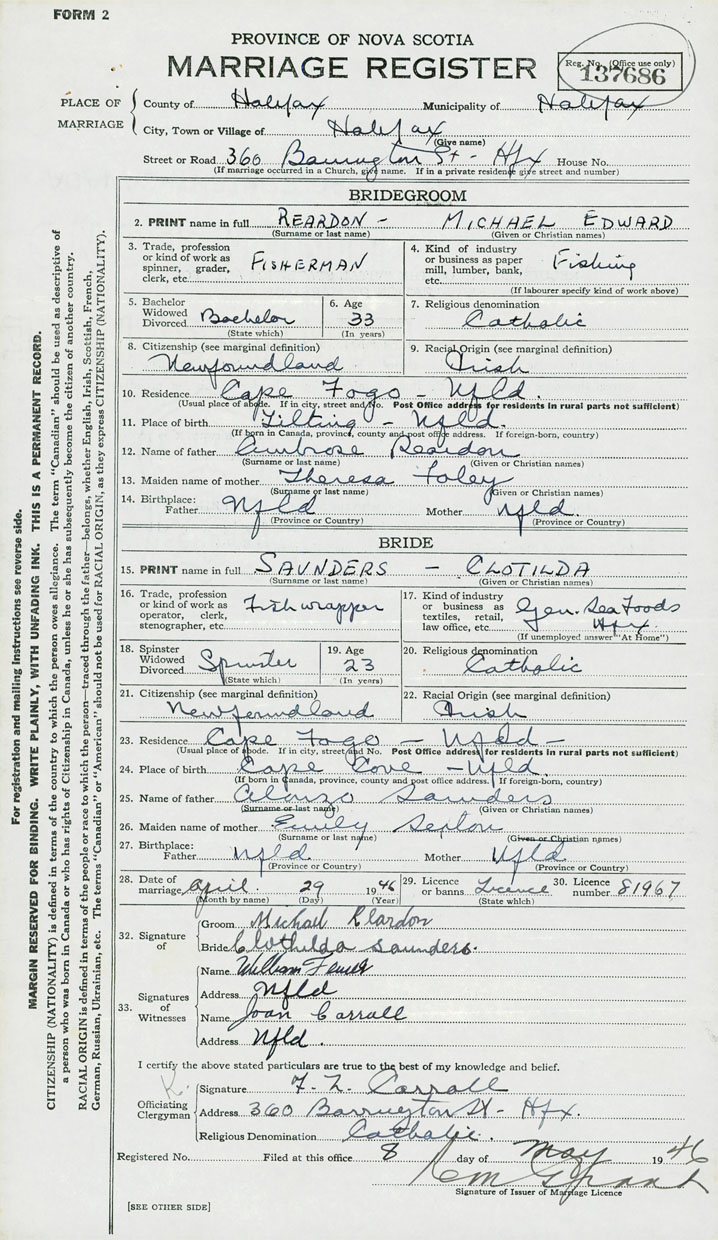 FORM 2
PROVINCE OF NOVA SCOTIA
MARRIAGE REGISTER
Reg. No. (Office use only)
137686
PLACE OF MARRIAGE
County of Halifax Municipality of Halifax
City, Town or Village of Halifax
(Give name)
Street or Road 360 Barrington St - Hfx House No.
(If marriage occurred in a Church, give name. If in a private residence give street and number)
BRIDEGROOM
2. PRINT name in full REARDON - MICHAEL EDWARD
(Surname or last name) (Given or Christian names)
3. Trade, profession or kind of work as spinner, grader, clerk, etc. FISHERMAN
4. Kind of industry or business as paper mill, lumber, bank, etc. Fishing
(If labourer specify kind of work above)
5. Bachelor Widowed Divorced Bachelor
(State which)
6. Age 33
(In years)
7. Religious denomination Catholic
8. Citizenship (see marginal definition) Newfoundland
9. Racial Origin (see marginal definition) Irish
10. Residence Cape Fogo - Nfld.
(Usual place of abode. If in city, street and No. Post Office address for residents in rural parts not sufficient)
11. Place of birth Tilting - Nfld.
(If born in Canada, province, county and post office address. If foreign-born, country)
12. Name of father Ambrose Reardon
(Surname or last name) (Given or Christian names)
13. Maiden name of mother Theresa Foley
(Surname or last name) (Given or Christian names)
14. Birthplace: Father Nfld Mother Nfld.
(Province or Country) (Province or Country)
BRIDE
15. PRINT name in full SAUNDERS - CLOTILDA
(Surname or last name) (Given or Christian names)
16. Trade, profession or kind of work as operator, clerk, stenographer, etc. Fish wrapper
17. Kind of industry or business as textiles, retail, law office, etc. Gen. Sea Foods Hfx.
(If unemployed answer "At Home")
18. Spinster Widowed Divorced Spinster
(State which)
19. Age 23
(In years)
20. Religious denomination Catholic
21. Citizenship (see marginal definition) Newfoundland
22. Racial Origin (see marginal definition) Irish
23. Residence Cape Fogo - Nfld -
(Usual place of abode. If in city, street and No. Post Office address for residents in rural parts not sufficient)
24. Place of birth Cape Cove - Nfld.
(If born in Canada, province, county and post office address. If foreign-born, country)
25. Name of father Alonzo Saunders
(Surname or last name) (Given or Christian names)
26. Maiden name of mother Emily
(Surname or last name) (Given or Christian names)
27. Birthplace: Father Nfld Mother Nfld
(Province or Country) (Province or Country)
28. Date of marriage April. 29 1946
(Month by name) (Day) (Year)
29. Licence or banns Licence
(State which)
30. Licence number 81967
32. Signature of
Groom Michael Reardon
Bride Clothilda Saunders.
33. Signatures of Witnesses
Name William
Address Nfld
Name Joan Carroll
Address Nfld.
I certify the above stated particulars are true to the best of my knowledge and belief.
Officiating Clergyman
Signature Carroll
Address 360 Barrington St - Hfx.
Religious Denomination Catholic.
Registered No. Filed at this office 8 day of May 1946
Signature of Issuer of Marriage Licence
[SEE OTHER SIDE]
For registration and mailing instructions see reverse side.
MARGIN RESERVED FOR BINDING. WRITE PLAINLY, WITH UNFADING INK. THIS IS A PERMANENT RECORD.
CITIZENSHIP (NATIONALITY) is defined in terms of the country to which the person owes allegiance. The term "Canadian" should be used as descriptive of
a person who was born in Canada or who has rights of Citizenship in Canada, unless he or she has subsequently become the citizen of another country.
RACIAL ORIGIN is defined in terms of the people or race to which the person—traced through the father—belongs, whether English, Irish, Scottish, French,
German, Russian, Ukrainian, etc. The terms "Canadian" or "American" should not be used for RACIAL ORIGIN, as they express CITIZENSHIP (NATIONALITY).